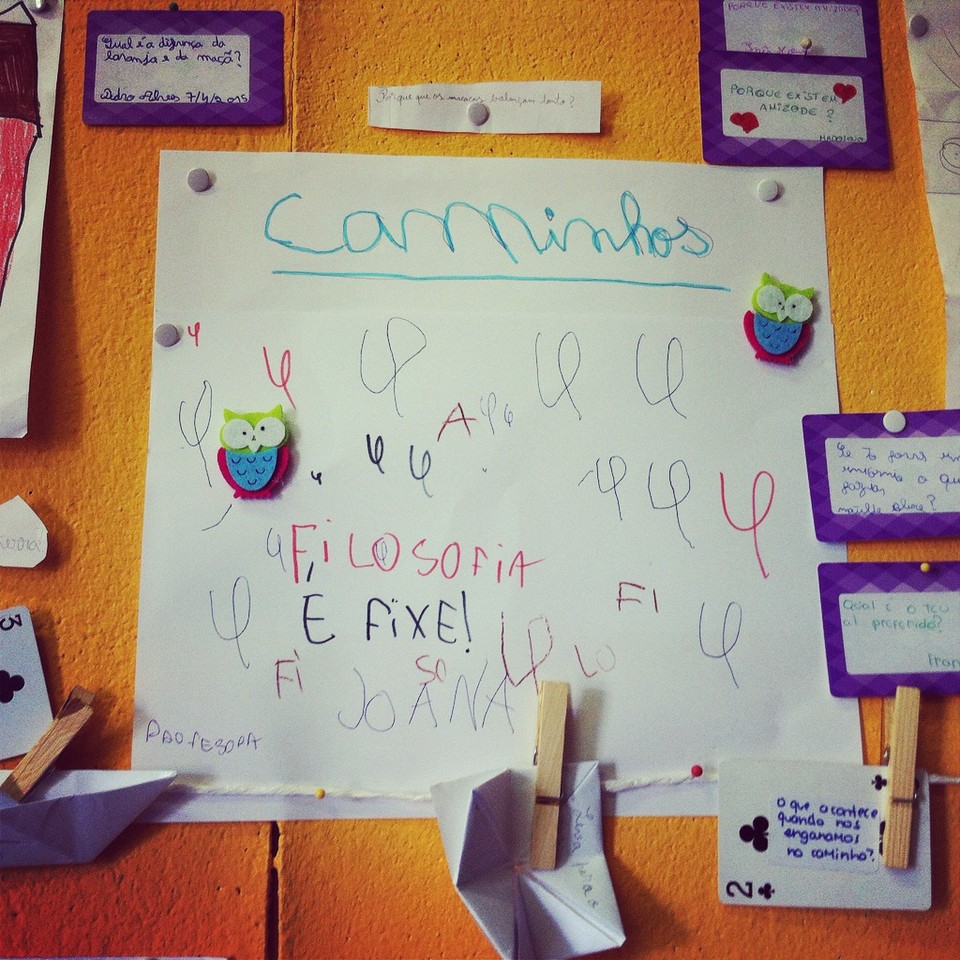 Qual é a difrença da
laranja e da maçã?
Pedro Alves 7/4/2015
Porque que os macacos balançam tanto?
PORQUE EXISTEM AMIZADES
PORQUE EXISTEM
AMIZADE ?
Caminhos
φ
φ φ φ φ
φ
A φ φ
φ φ
φ φ φ
φ FiLOSOFiA
É FiXE!
φ FI φ
Fi SO φ LO
JOANA
PROFESORA
Se
o que
Qual é o teu
al preferido?
Fran
3
O que acontece
quando nos
enganamos
no caminho?
2